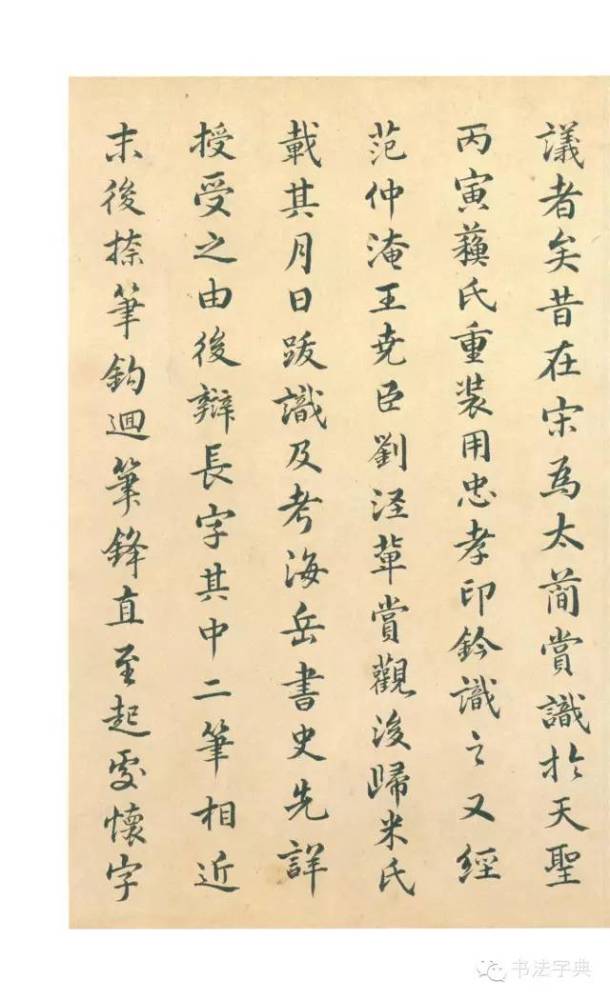 議者矣昔在宋為太簡賞識於天聖
丙寅蘇氏重装用忠孝印鈐識之又經
范仲淹王尭臣劉涇輩賞觀後歸米氏
載其月日跋識及考海岳書史先詳
授受之由後辯長字其中二筆相近
末後捺筆鈎迴筆鋒直至起處懷字
书法字典